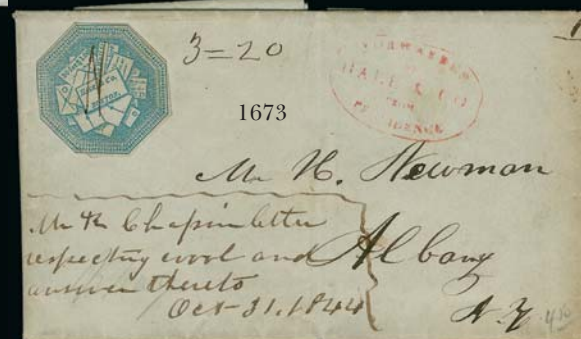 3=20
FORWARDED
HALE & CO
FROM
PROVIDENCE
HALE & CO.
BOSTON.
1673
Mr H. Newman
Albany
N.Y.
Mr R Chapin letter
respecting wool and
answer thereto
Oct-31.1844